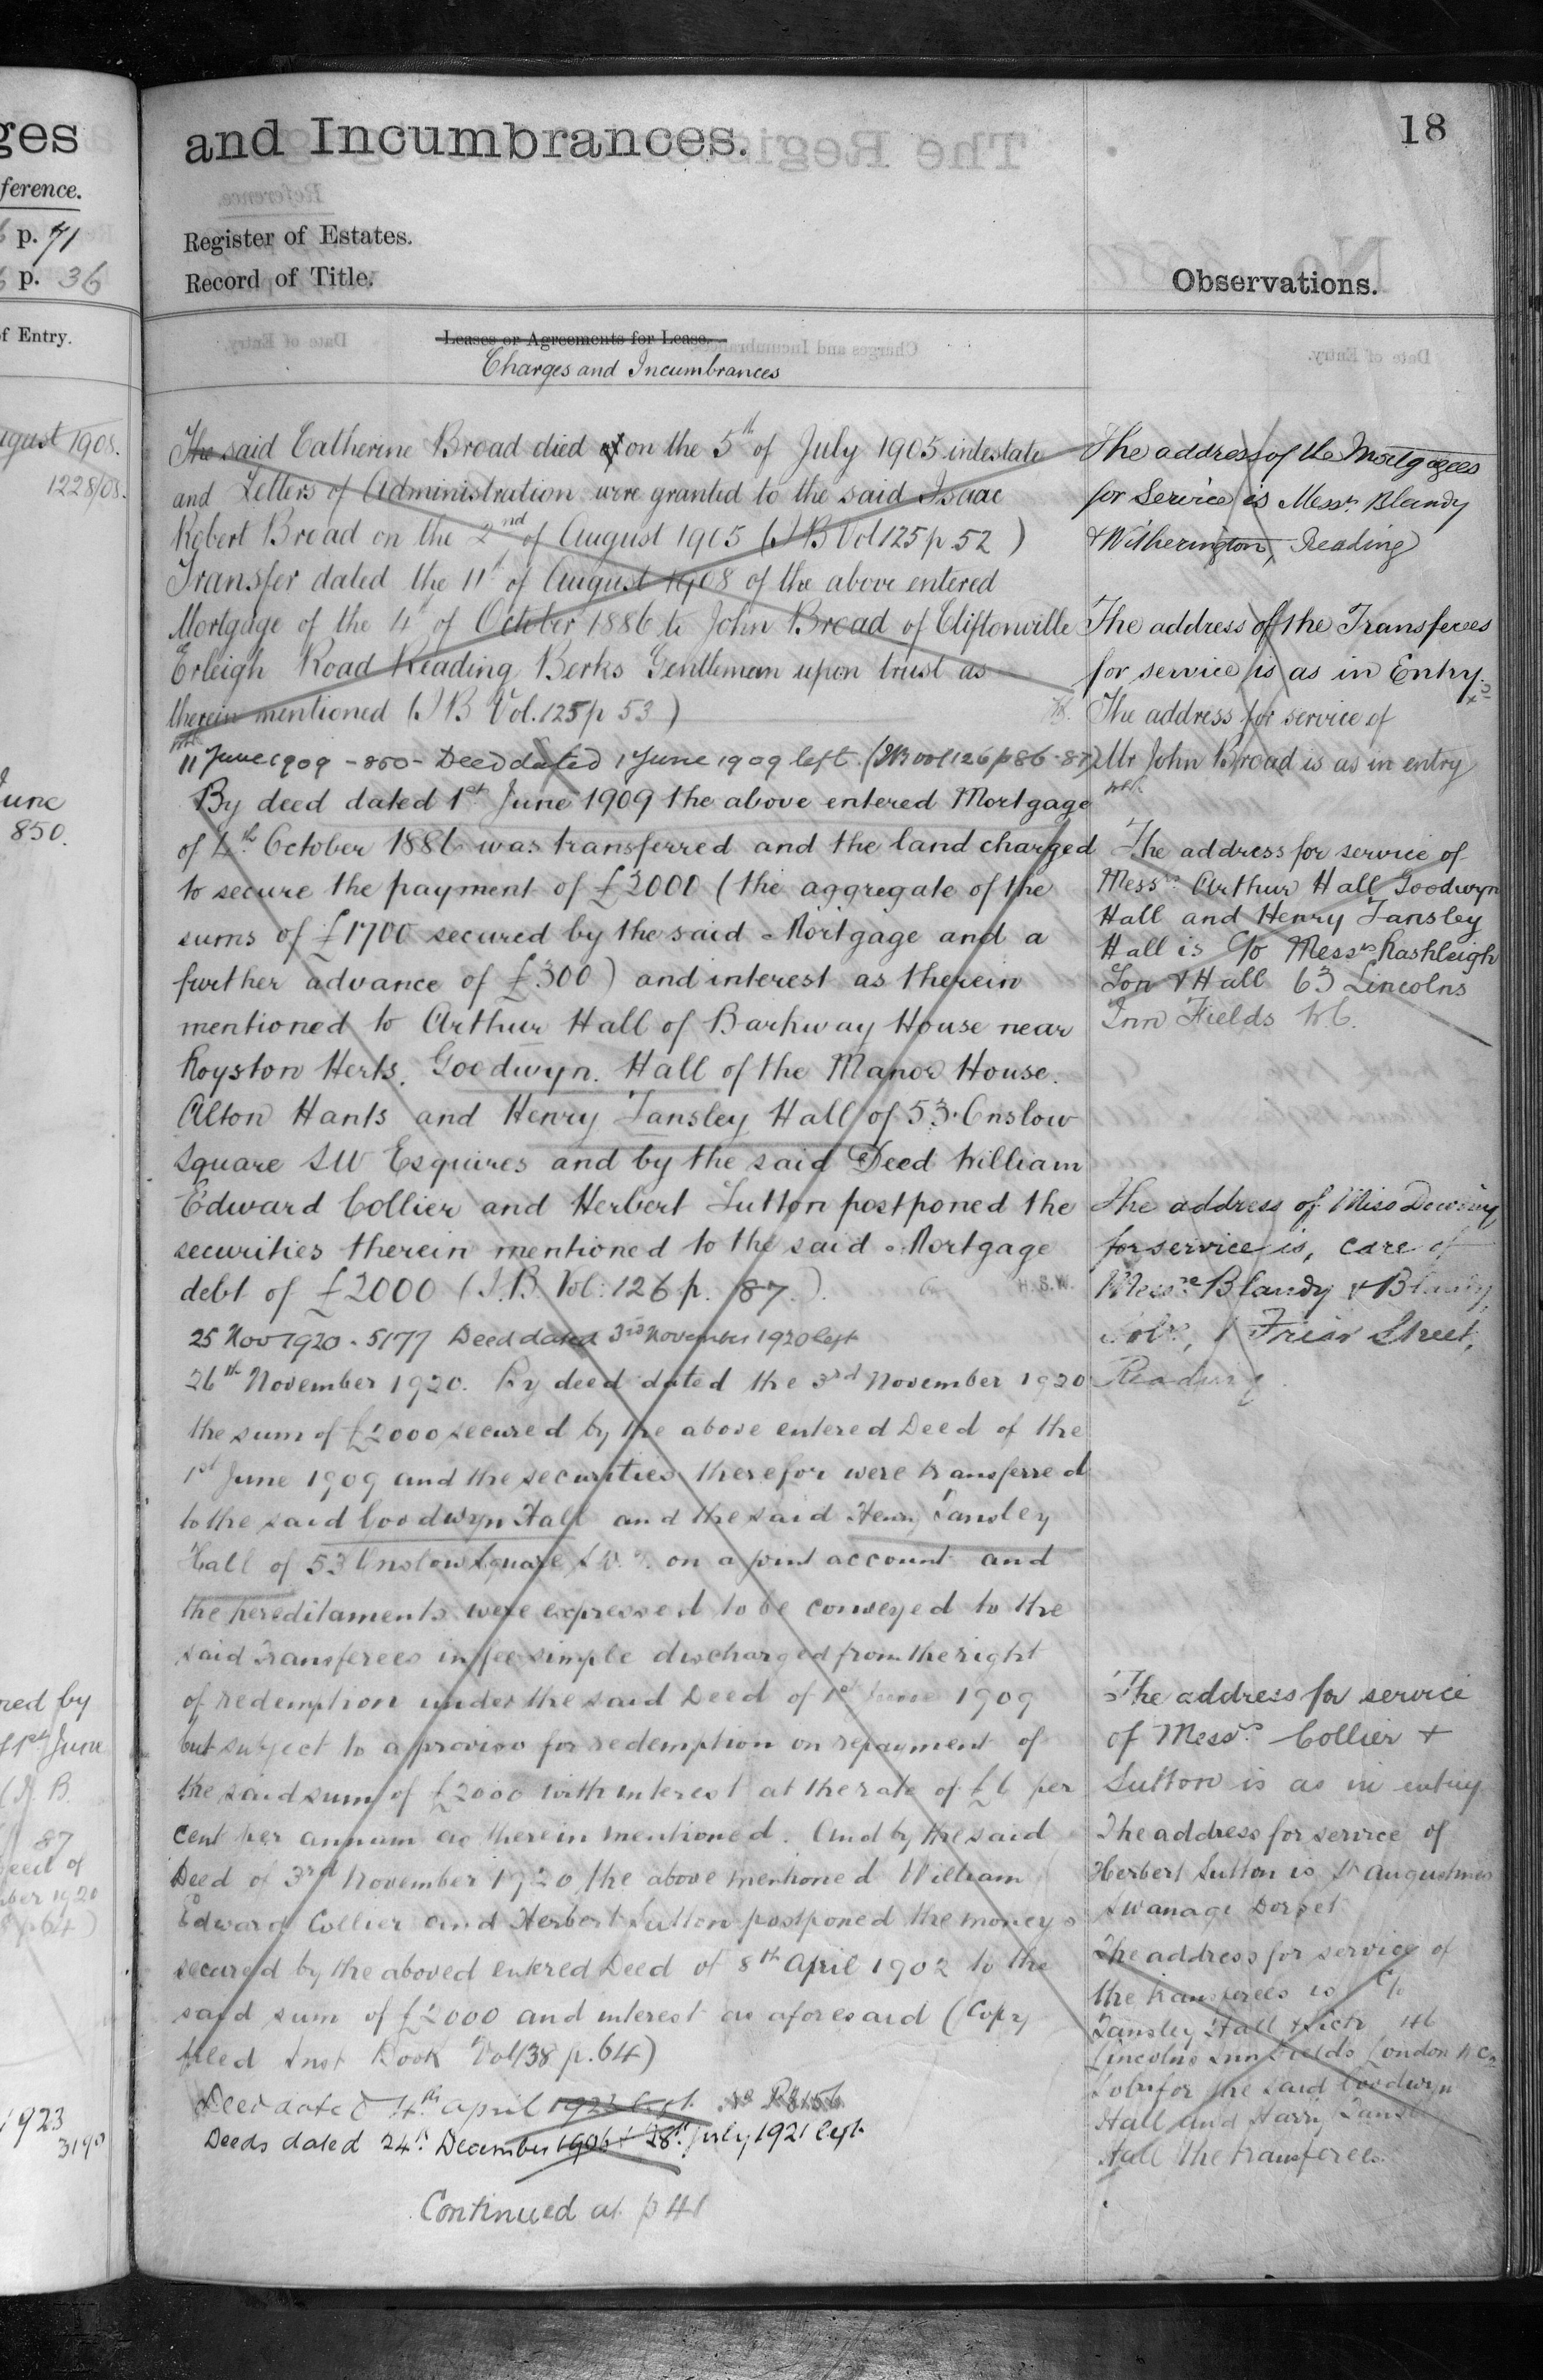 ges
ference.
p. 71
p. 36
of Entry.
ugust 1908.
1228/08.
June
850.
red by
f 1st June
(I. B.
87
deed of
ber 1920
p64)
1923
3190
and Incumbrances.
18
Register of Estates.
Record of Title.
Observations.
Leases or Agreements for Lease.
Charges and Incumbrances
The said Catherine Broad died on the 5th of July 1905 intestate
and Letters of Administration were granted to the said Isaac
Robert Broad on the 2nd of August 1905 (I B Vol 125 p 52)
Transfer dated the 11th of August 1908 of the above entered
Mortgage of the 4th of October 1886 to John Broad of Cliftonville
Erleigh Road Reading Berks Gentleman upon trust as
therein mentioned (I B Vol. 125 p 53)
11 June 1909 - 850 - Deed dated 1 June 1909 left. (IB vol 126 p 86-87)
By deed dated 1st June 1909 the above entered Mortgage
of 4th October 1886 was transferred and the land charged
to secure the payment of £2000 (the aggregate of the
sums of £1700 secured by the said Mortgage and a
further advance of £300) and interest as therein
mentioned to Arthur Hall of Barkway House near
Royston Herts. Goodwyn. Hall of the Manor House.
Alton Hants and Henry Tansley Hall of 53 Onslow
Square SW Esquires and by the said Deed William
Edward Collier and Herbert Sutton postponed the
securities therein mentioned to the said Mortgage
debt of £2000 (I.B. Vol: 126 p. 87.) H.S.W.
25 Nov 1920 - 5177 Deed dated 3rd November 1920 left
26th November 1920. By deed dated the 3rd November 1920
the sum of £2000 secured by the above entered Deed of the
1st June 1909 and the securities therefor were transferred
to the said Goodwyn Hall and the said Henry Tansley
Hall of 53 Onslow Square S.W.7. on a joint account and
the hereditaments were expressed to be conveyed to the
said Transferees in fee simple discharged from the right
of redemption under the said Deed of 1st June 1909
but subject to a proviso for redemption on repayment of
the said sum of £2000 with interest at the rate of £6 per
cent per annum as therein mentioned. And by the said
Deed of 3rd November 1920 the above mentioned William
Edward Collier and Herbert Sutton postponed the moneys
secured by the aboved entered Deed of 8th April 1902 to the
said sum of £2000 and interest as aforesaid (Copy
filed Inst Book Vol 138 p. 64)
Deed dated 4th April 1923 left
Deeds dated 24th December 1906 & 28th July 1921 left
Continued at p 41
The address of the Mortgagees
for Service is Messrs Blandy
& Witherington, Reading
The address of the Transferees
for service is as in Entry.
The address for service of
Mr John Broad is as in entry
The address for service of
Messrs Arthur Hall Goodwyn
Hall and Henry Tansley
Hall is c/o Messrs Rashleigh
Son & Hall 63 Lincolns
Inn Fields WC.
The address of Miss Downey
for service is, care of
Messrs Blandy & Blandy,
Solrs, 1 Friar Street,
Reading.
The address for service
of Messrs Collier &
Sutton is as in entry
The address for service of
Herbert Sutton is St Augustines
Swanage Dorset
The address for service of
the transferees is c/o
Tansley Hall 46
Lincolns Inn Fields London WC2
Solrs for the said Goodwyn
Hall and Harry Tansley
Hall the transferees.